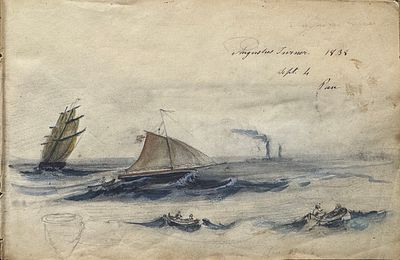 Augustus Turner 1838
Sept. 4